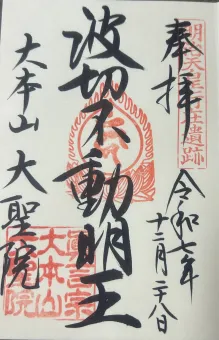 奉拝
令和七年
十二月二十八日
波切不動明王
大本山 大聖院
真言宗
大本山
大聖院